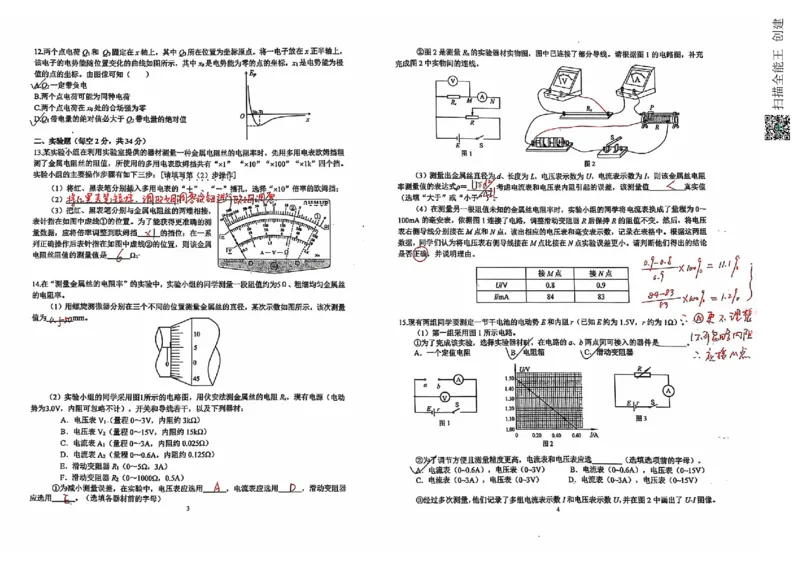 12.两个点电荷 Q₁和 Q₂固定在 x 轴上，其中 Q₁所在位置为坐标原点。将一电子放在 x 正半轴上，
该电子的电势能随位置变化的曲线如图所示，其中 x₀是电势能为零的点的坐标，x₁是电势能为极
值的点的坐标。由图像可知（ ）
A.Q₁一定带负电
B.两个点电荷可能为同种电荷
C.两个点电荷在 x₀处的合场强为零
D.Q₂带电量的绝对值必大于 Q₁带电量的绝对值
二、实验题（每空 2 分，共 34 分）
13.某实验小组在利用实验室提供的器材测量一种金属电阻丝的电阻率时，先用多用电表欧姆挡粗
测了金属电阻丝的阻值，所使用的多用电表欧姆挡共有 “×1” “×10” “×100” “×1k” 四个挡。
实验小组的主要操作步骤有如下三步：【请填写第（2）步操作】
（1）将红、黑表笔分别插入多用电表的“+”、“-”插孔，选择“×10”倍率的欧姆挡；
（2）将红黑表笔短接，调
（3）把红、黑表笔分别与金属电阻丝的两端相接，
表针指在如图中虚线①的位置。为了能获得更准确的测
量数据，应将倍率调整到欧姆挡 ×1 的挡位；在一系
列正确操作后表针指在如图中虚线②的位置，则该金属
电阻丝阻值的测量值是 6 Ω。
A-V-Ω
14.在“测量金属丝的电阻率”的实验中，实验小组的同学测量一段阻值约为5 Ω、粗细均匀金属丝
的电阻率。
（1）用螺旋测微器分别在三个不同的位置测量金属丝的直径，某次示数如图所示，该次测量
值为 mm。
10
5
0
45
（2）实验小组的同学采用图1所示的电路图，用伏安法测金属丝的电阻 Rₓ，现有电源（电动
势为3.0V，内阻可忽略不计），开关和导线若干，以及下列器材：
A．电压表 V₁（量程 0~3V，内阻约 3kΩ）
B．电压表 V₂（量程 0~15V，内阻约 15kΩ）
C．电流表 A₁（量程 0~3A，内阻约 0.025Ω）
D．电流表 A₂（量程 0~0.6A，内阻约 0.125Ω）
E．滑动变阻器 R₁（0~5Ω，3A）
F．滑动变阻器 R₂（0~1000Ω，0.5A）
①为减小测量误差，在实验中，电压表应选用 A ，电流表应选用 D ，滑动变阻器
应选用 E 。（选填各器材前的字母）
3
②图 2 是测量 Rₓ的实验器材实物图，图中已连接了部分导线。请根据图 1 的电路图，补充
完成图 2 中实物间的连线。
图 1
图 2
（3）测量出金属丝直径为 d、长度为 L，电压表示数为 U，电流表示数为 I，则该金属丝电阻
率测量值的表达式ρ= ，考虑电流表和电压表内阻引起的误差，该测量值 < 真实值
（选填“大于”或“小于”）。
（4）在测量另一根阻值未知的金属丝电阻率时，实验小组的同学将电流表换成了量程为 0~
100mA 的毫安表，依照图 1 连接了电路，调整滑动变阻器 R 后保持 R 的阻值不变。然后，将电压
表右侧导线分别接在 M 点和 N 点，读出相应的电压表和毫安表示数，记录在表格中。根据这两组
数据，同学们认为将电压表右侧导线接在 M 点比接在 N 点实验误差更小。请判断他们得出的结论
是否正确，并说明理由。
接 M 点 接 N 点
U/V 0.8 0.9
I/mA 84 83
0.9-0.8
0.9 ×100% = 11.1%
84-83
83 ×100% = 1.2%
15.现有两组同学要测定一节干电池的电动势 E 和内阻 r（已知 E 约为 1.5V，r 约为 1Ω）。
（1）第一组采用图 1 所示电路。
①为了完成该实验，选择实验器材时，在电路的 a、b 两点间可接入的器件是 。
A．一个定值电阻 B．电阻箱 C．滑动变阻器
图 1
U/V
1.50
1.40
1.30
1.20
1.10
1.00
0 0.20 0.40 0.60 I/A
图 2
图 3
②为了调节方便且测量精度更高，电流表和电压表应选 （选填选项前的字母）。
A．电流表（0~0.6A），电压表（0~3V） B．电流表（0~0.6A），电压表（0~15V）
C．电流表（0~3A），电压表（0~3V） D．电流表（0~3A），电压表（0~15V）
③经过多次测量，他们记录了多组电流表示数 I 和电压表示数 U，并在图 2 中画出了 U-I 图像。
4
扫描全能王 创建